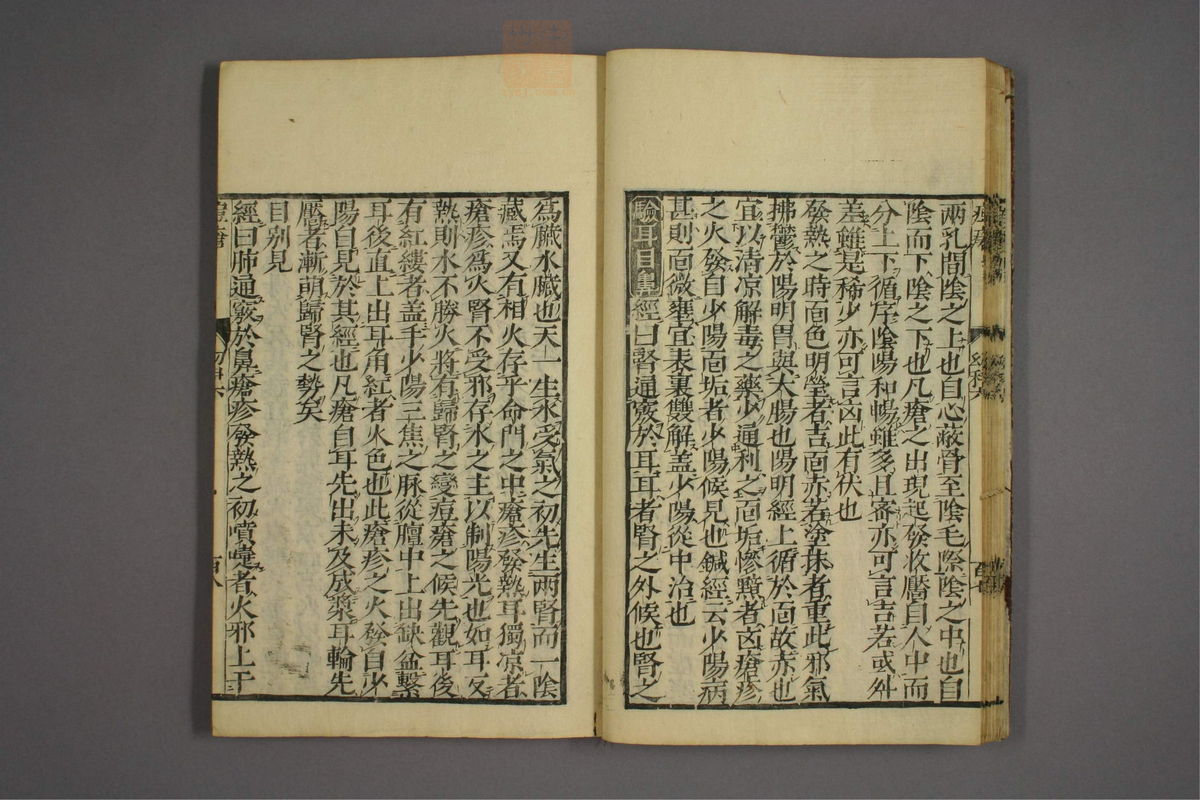 兩乳間陰之上也自心蔽骨至陰毛際陰之中也自
陰而下陰之下也凡瘡之出現起發收靨自人中而
分上下循序陰陽和暢雖多且密亦可言吉若或舛
差雖是稀少亦可言凶此有伏也
發熱之時面色明瑩者吉面赤若塗抹者重此邪氣
拂鬱於陽明胃與大腸也陽明經上循於面故赤也
宜以清涼解毒之藥少通利之面垢慘黯者凶瘡疹
之火發自少陽面垢者少陽候見也鍼經云少陽病
甚則面微塵宜表裏雙解盖少陽從中治也
驗耳目鼻經曰腎通竅於耳耳者腎之外候也腎之
為臟水臟也天一生水受氣之初先生兩腎而一陰
藏焉又有相火存乎命門之中瘡疹發熱耳獨凉者
瘡疹為火腎不受邪存水之主以制陽光也如耳反
熱則水不勝火將有歸腎之變痘瘡之候先觀耳後
有紅縷者盖手少陽三焦之脉從膻中上出缺盆繫
耳後直上出耳角紅者火色也此瘡疹之火發自少
陽白見於其經也凡瘡自耳先出未及成漿耳輪先
靨者漸萌歸腎之勢矣
目別見
經曰肺通竅於鼻瘡疹發熱之初噴嚏者火邪上干